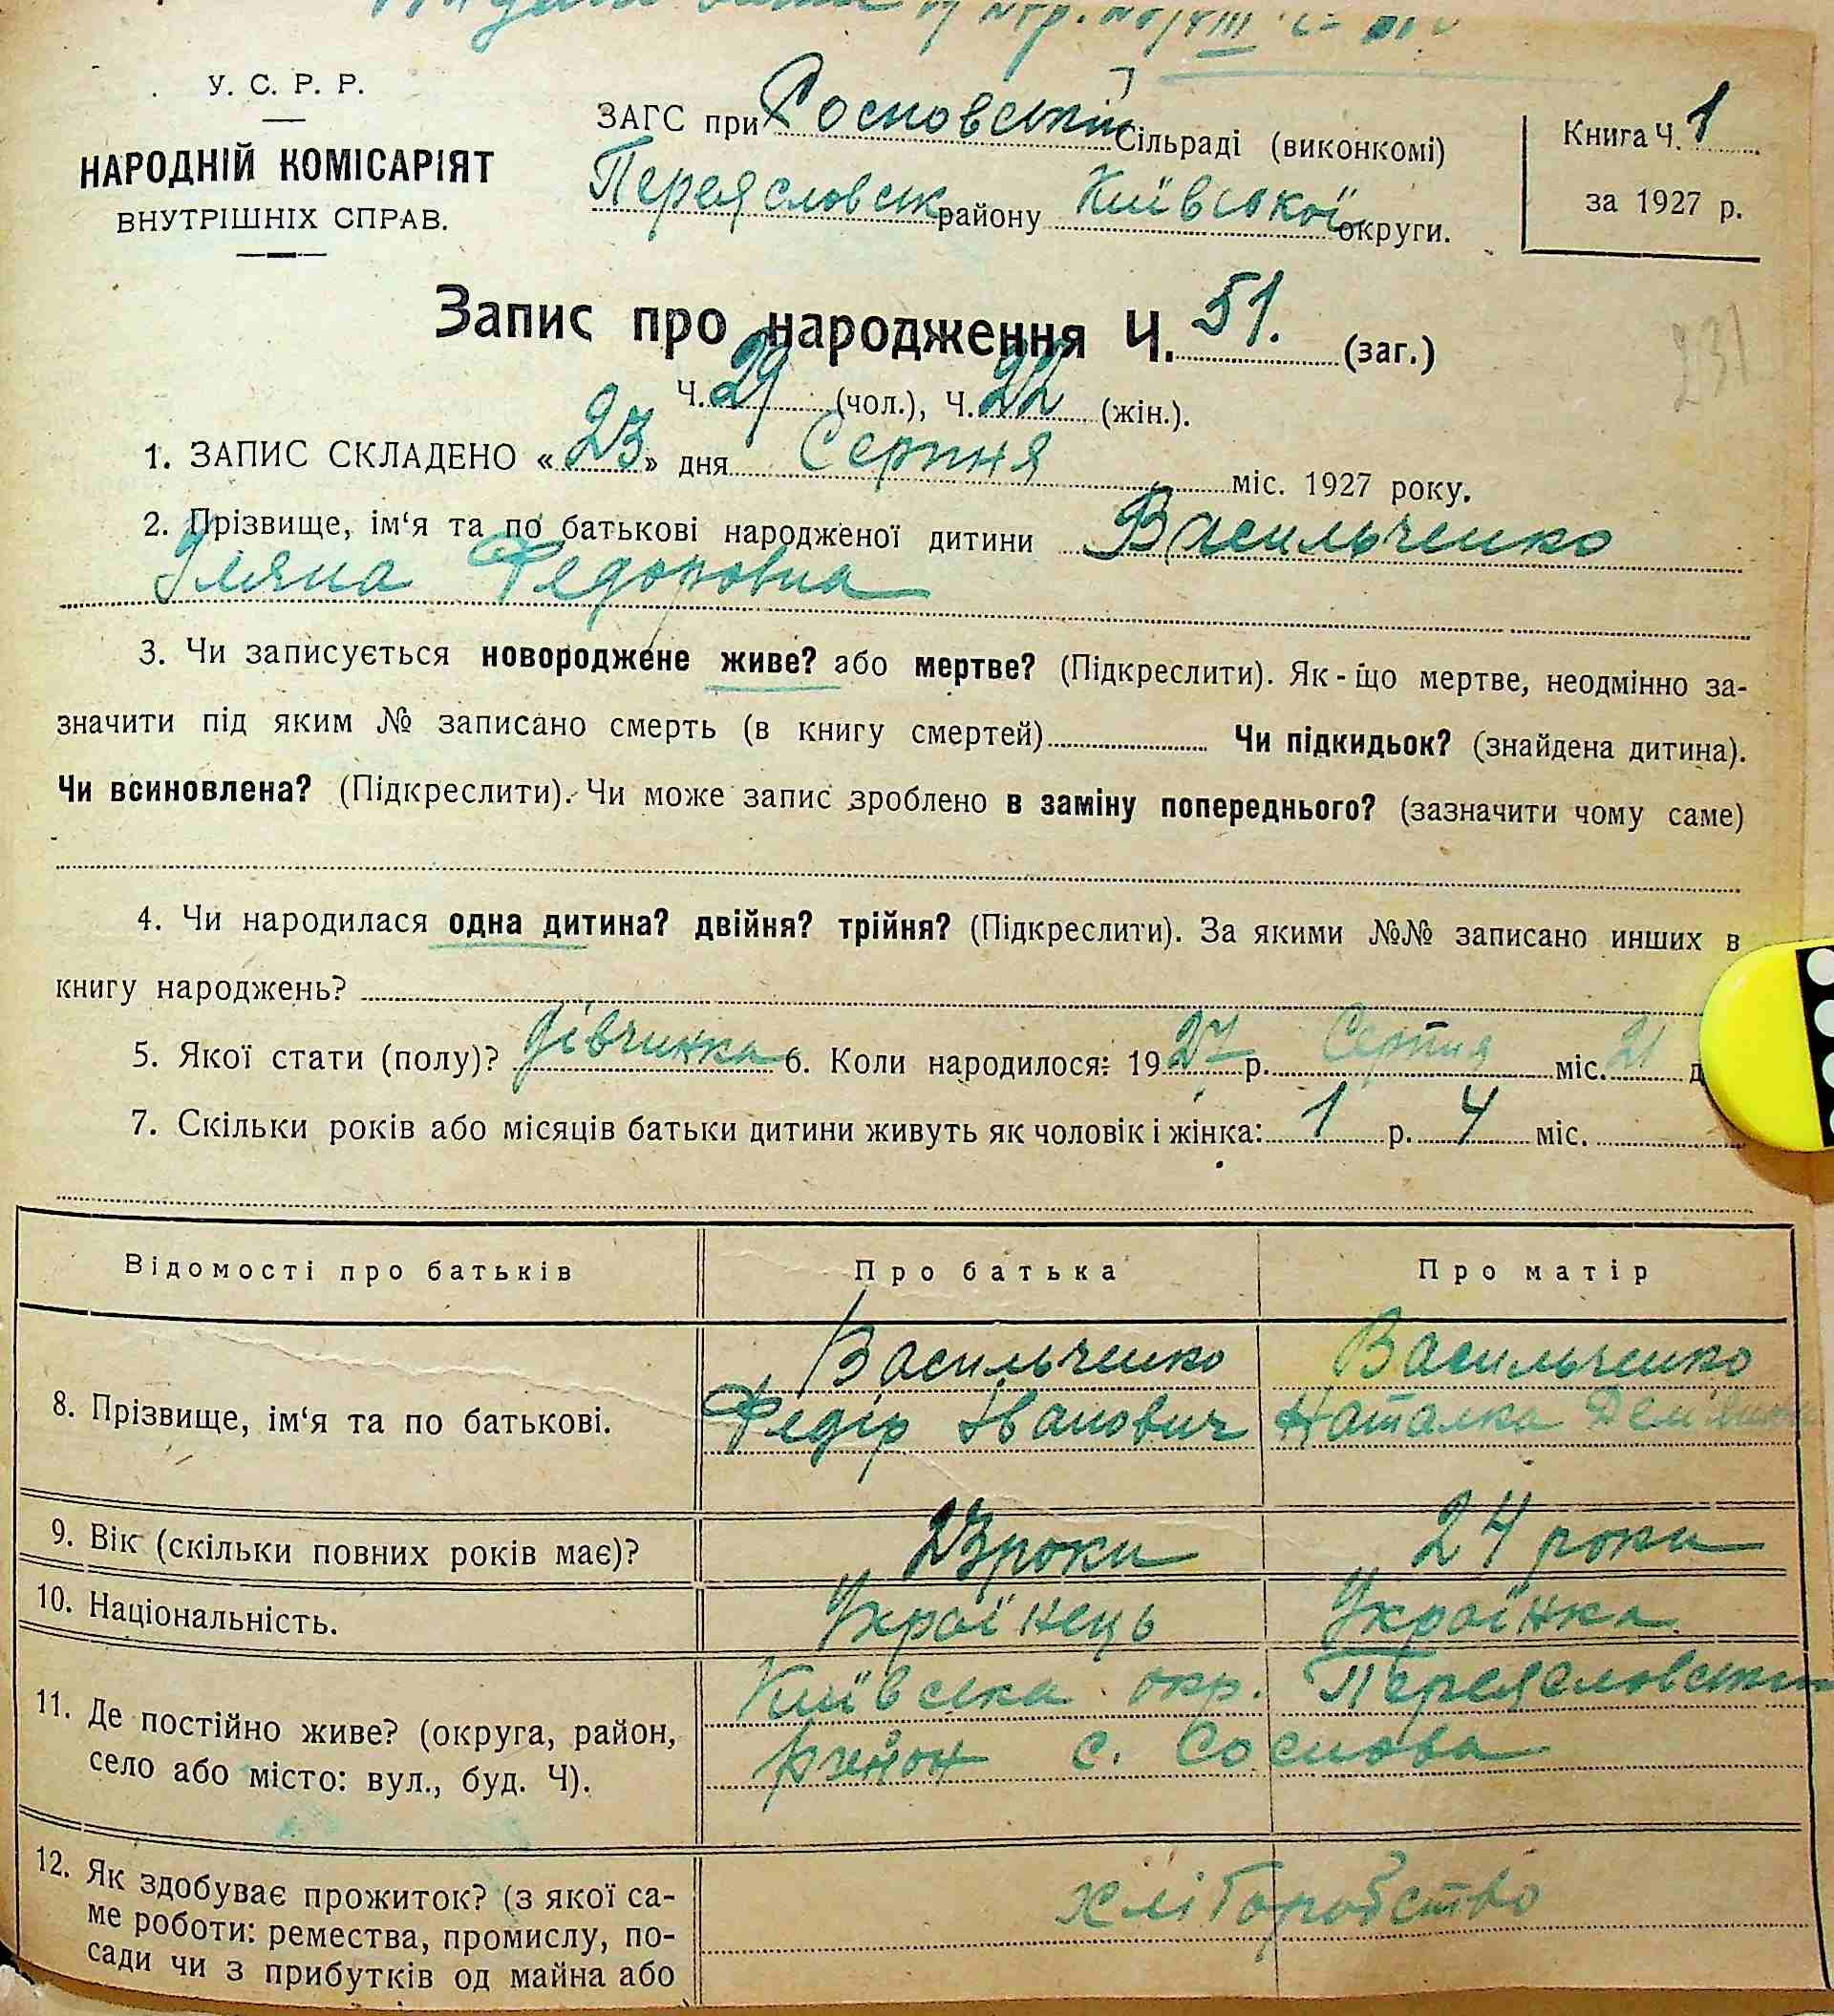 У. С. Р. Р.
НАРОДНІЙ КОМІСАРІЯТ
ВНУТРІШНІХ СПРАВ.
ЗАГС при Сосновській Сільраді (виконкомі)
Переяславськ району Київської округи.
Книга Ч. 1
за 1927 р.
Запис про народження Ч. 51. (заг.)
231
Ч. 29 (чол.), Ч. 22 (жін.).
1. ЗАПИС СКЛАДЕНО «23» дня Серпня міс. 1927 року.
2. Прізвище, ім‘я та по батькові народженої дитини Васильченко
Уляна Федоровна
3. Чи записується новороджене живе? або мертве? (Підкреслити). Як-що мертве, неодмінно за-
значити під яким № записано смерть (в книгу смертей) Чи підкидьок? (знайдена дитина).
Чи всиновлена? (Підкреслити). Чи може запис зроблено в заміну попереднього? (зазначити чому саме)
4. Чи народилася одна дитина? двійня? трійня? (Підкреслити). За якими №№ записано инших в
книгу народжень?
5. Якої стати (полу)? дівчинка 6. Коли народилося: 1927 р. Серпня міс. 21 д
7. Скільки років або місяців батьки дитини живуть як чоловік і жінка: 1 р. 4 міс.
Відомості про батьків Про батька Про матір
8. Прізвище, ім‘я та по батькові. Васильченко Васильченко
Федір Іванович Наталка
9. Вік (скільки повних років має)? 23 роки 24 роки
10. Національність. Українець Українка
11. Де постійно живе? (округа, район, Київська окр. Переясловський
село або місто: вул., буд. Ч). район с. Соснова
12. Як здобуває прожиток? (з якої са- хліборобство
ме роботи: ремества, промислу, по-
сади чи з прибутків од майна або